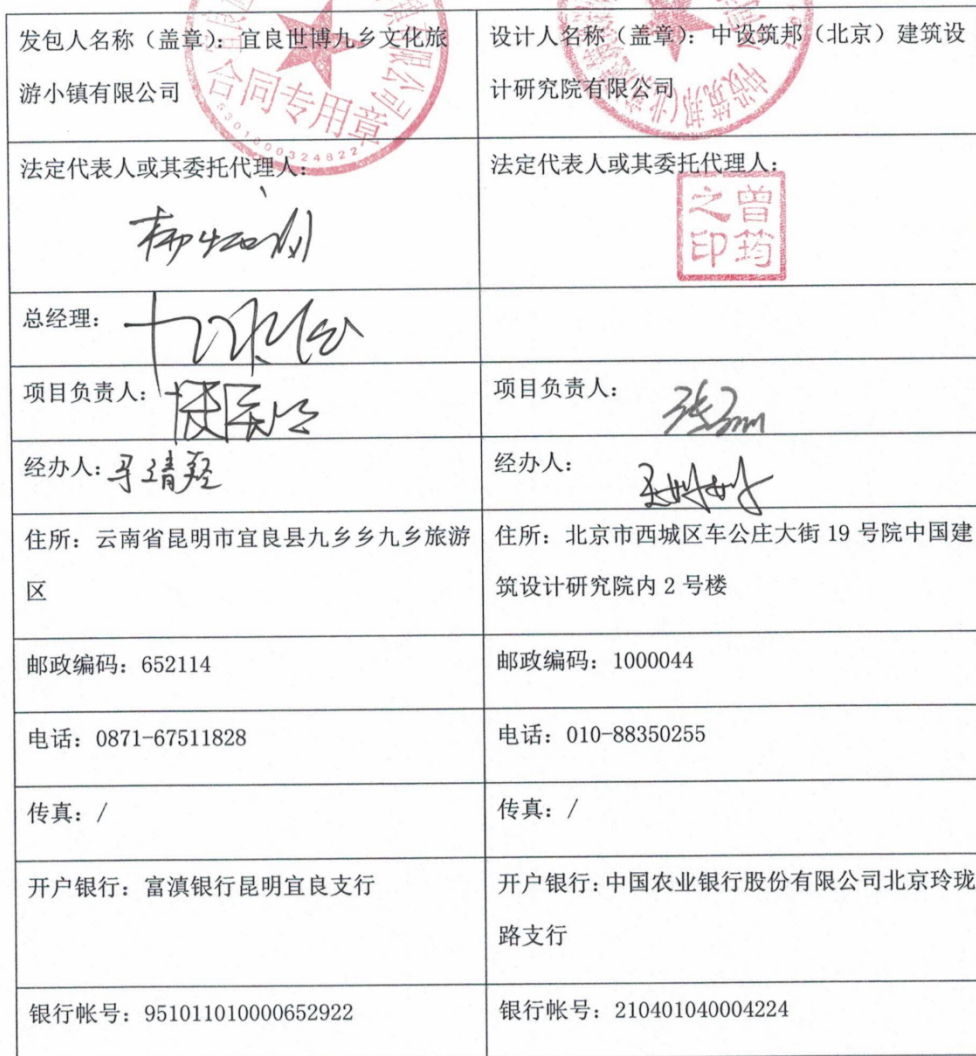 发包人名称（盖章）：宜良世博九乡文化旅
游小镇有限公司
设计人名称（盖章）：中设筑邦（北京）建筑设
计研究院有限公司
合同专用章
5301000324822
法定代表人或其委托代理人：
法定代表人或其委托代理人：
曾筠
之印
总经理：
项目负责人：
项目负责人：
经办人：
经办人：
住所：云南省昆明市宜良县九乡乡九乡旅游
区
住所：北京市西城区车公庄大街 19 号院中国建
筑设计研究院内 2 号楼
邮政编码：652114
邮政编码：1000044
电话：0871-67511828
电话：010-88350255
传真：/
传真：/
开户银行：富滇银行昆明宜良支行
开户银行：中国农业银行股份有限公司北京玲珑
路支行
银行帐号：951011010000652922
银行帐号：210401040004224